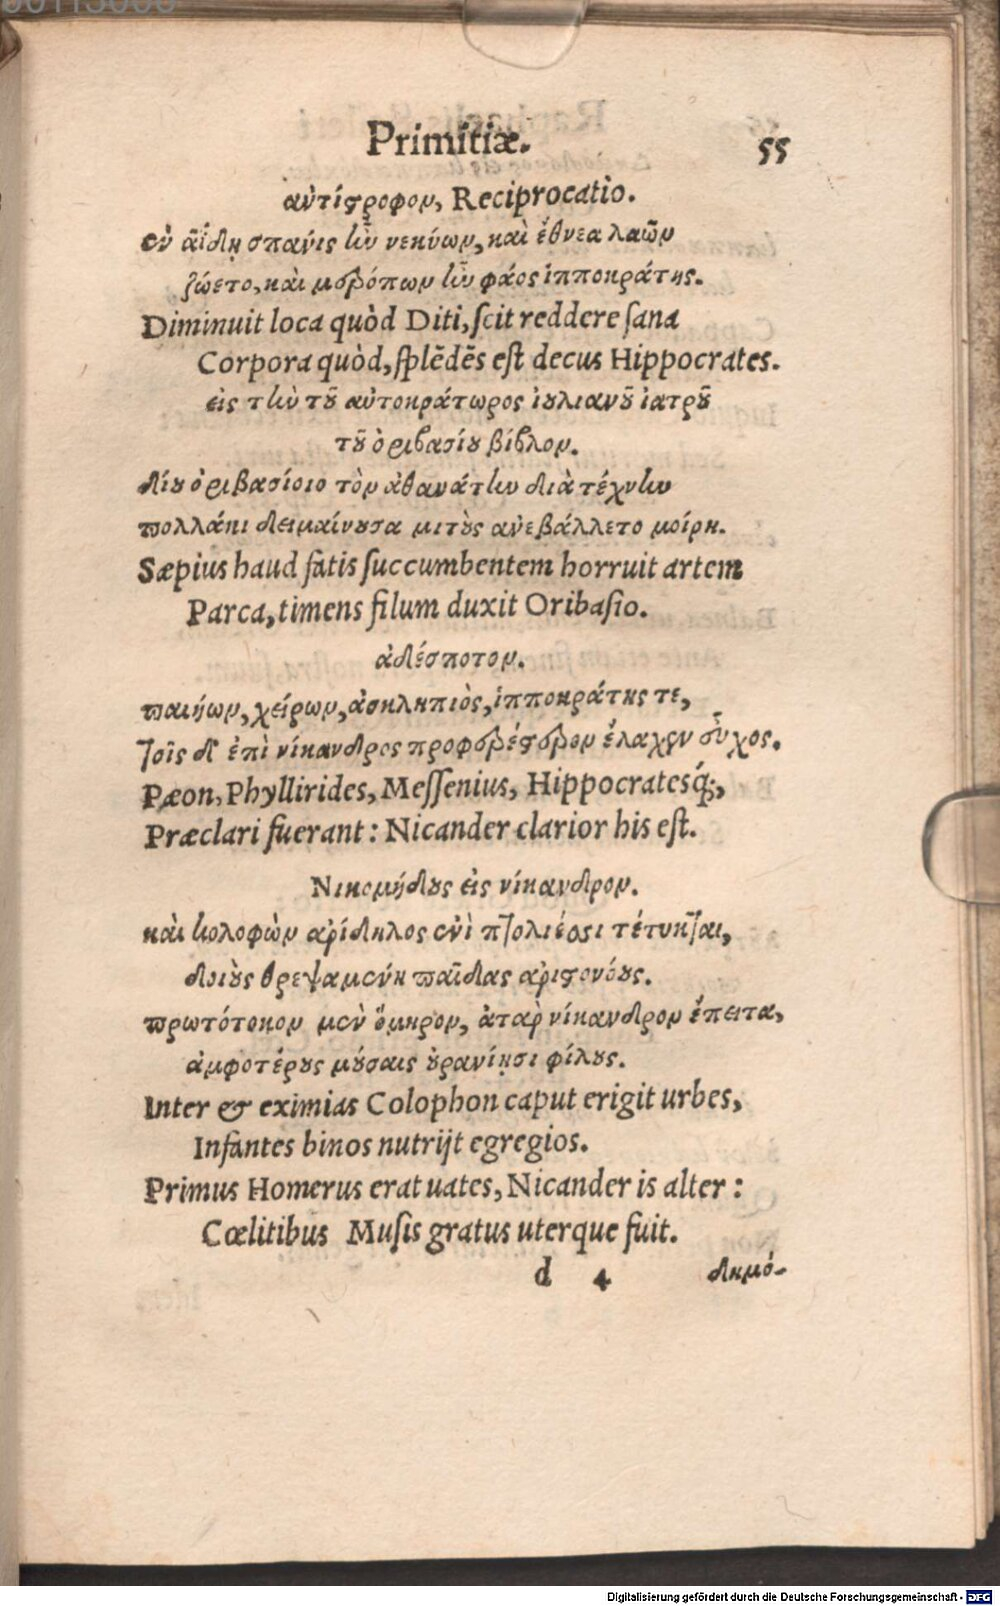 Primitiæ. 55
αὐτίϛροφον, Reciprocatio.
ἐν ἀΐδῃ σπάνις ἦν νεκύων, καὶ ἔθνεα λαῶν
ζώετο, καὶ μερόπων ἦν φάος ἱπποκράτης.
Diminuit loca quòd Diti, ſcit reddere ſana
Corpora quòd, ſplēdēs eſt decus Hippocrates.
εἰς τὴν τοῦ αὐτοκράτωρος ἰουλιανοῦ ἰατροῦ
τοῦ ὀριβασίου βίβλον.
δίου ὀριβασίοιο τὸν ἀθανάτην διὰ τέχνην
πολλάκι δειμαίνουσα μιτοὺς ἀνεβάλλετο μοίρη.
Sæpius haud fatis ſuccumbentem horruit artem
Parca, timens filum duxit Oribaſio.
ἀδέσποτον.
παιήων, χείρων, ἀσκληπιὸς, ἱπποκράτης τε,
τοῖς δ' ἐπὶ νίκανδρος προφερέςερον ἔλαχεν εὖχος.
Pæon, Phyllirides, Meſſenius, Hippocratesq́;,
Præclari fuerant: Nicander clarior his eſt.
Νικομήδους εἰς νίκανδρον.
καὶ κολοφὼν ἀρίδηλος ἐνὶ πτολιέσσι τέτυκται,
δοιοὺς θρεψαμένη παῖδας ἀριςονόους.
πρωτότοκον μὲν ὅμηρον, ἀτὰρ νίκανδρον ἔπειτα,
ἀμφοτέρους μούσαις οὐρανίῃσι φίλους.
Inter & eximias Colophon caput erigit urbes,
Infantes binos nutrijt egregios.
Primus Homerus erat uates, Nicander is alter:
Cœlitibus Muſis gratus uterque fuit.
d 4 δημό-
Digitalisierung gefördert durch die Deutsche Forschungsgemeinschaft - DFG